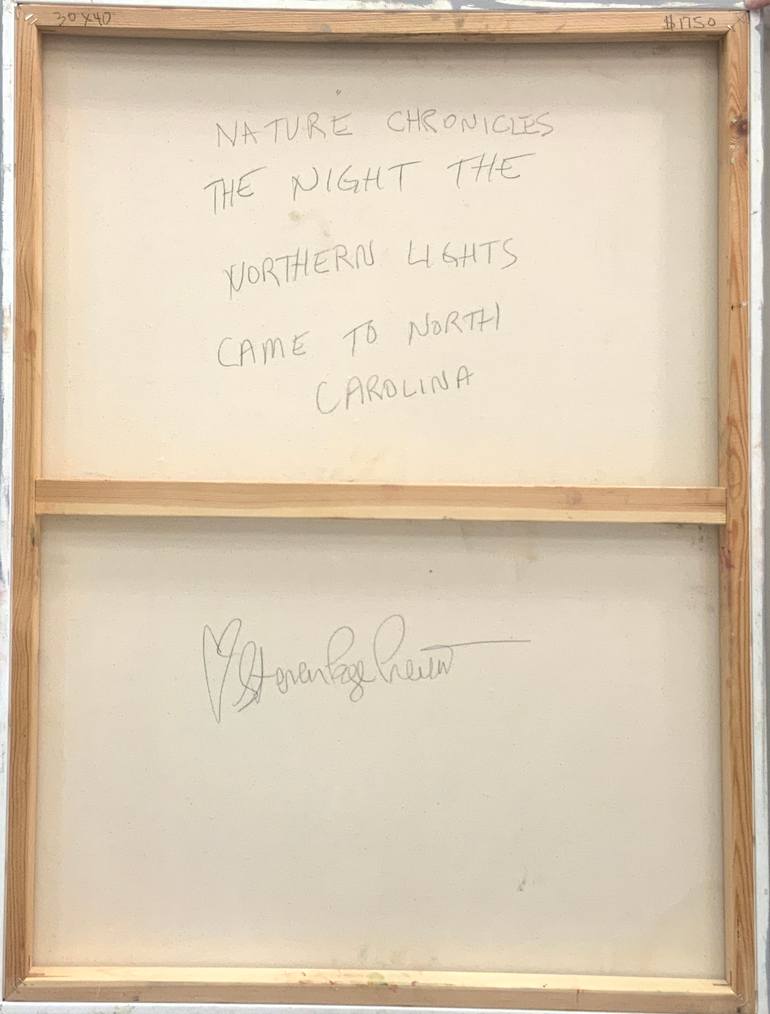 30X40 $1750
NATURE CHRONICLES
THE NIGHT THE
NORTHERN LIGHTS
CAME TO NORTH
CAROLINA
Steven Page Prewitt